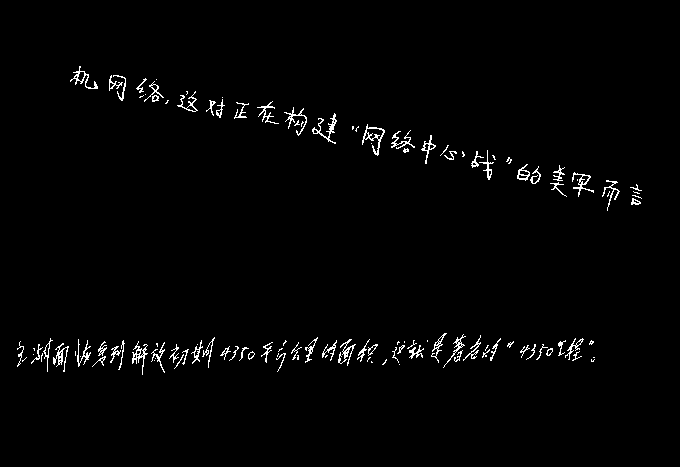 机网络，这对正在构建“网络中心战”的美军而言
主湖面恢复到解放初期4350平方公里的面积，这就是著名的“4350工程”。